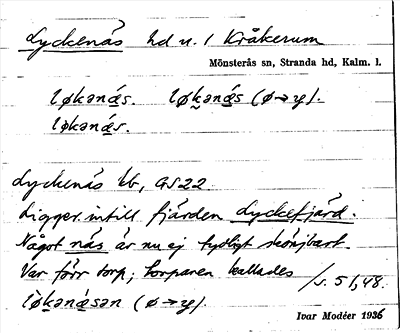 Lyckenäs hd u. / Kråkerum
Mönsterås sn, Stranda hd, Kalm. l.
løkənæs. løkənæs (ø→y).
løkənæs.
Lyckenäs kb, GS22.
Ligger intill fjärden Lyckefjärd.
Något näs är nu ej tydligt skönjbart.
Var förr torp; torparen kallades
løkənæsən (ø→y) /s. 51,48.
Ivar Modéer 1936